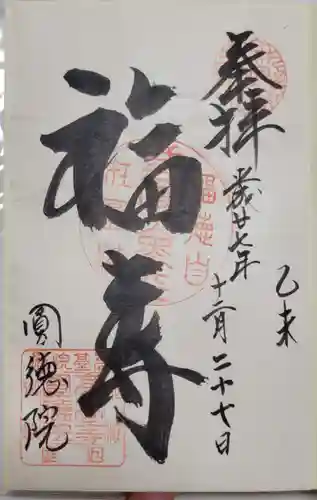 奉拝
乙未
歳廿七年
十二月二十七日
福寿
圓徳院